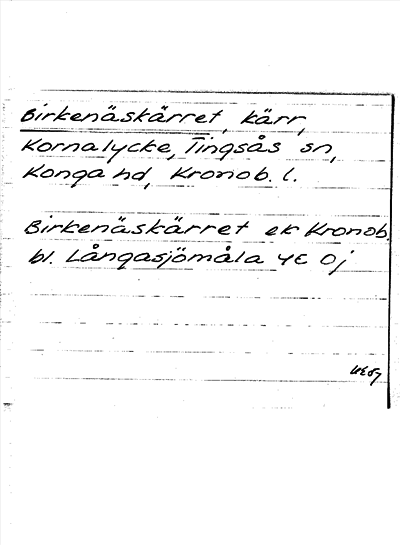 Birkenäskärret, kärr,
Kornalycke, Tingsås sn,
Konga hd, Kronob. l.
Birkenäskärret ek Kronob.
bl. Långasjömåla 4E 0j